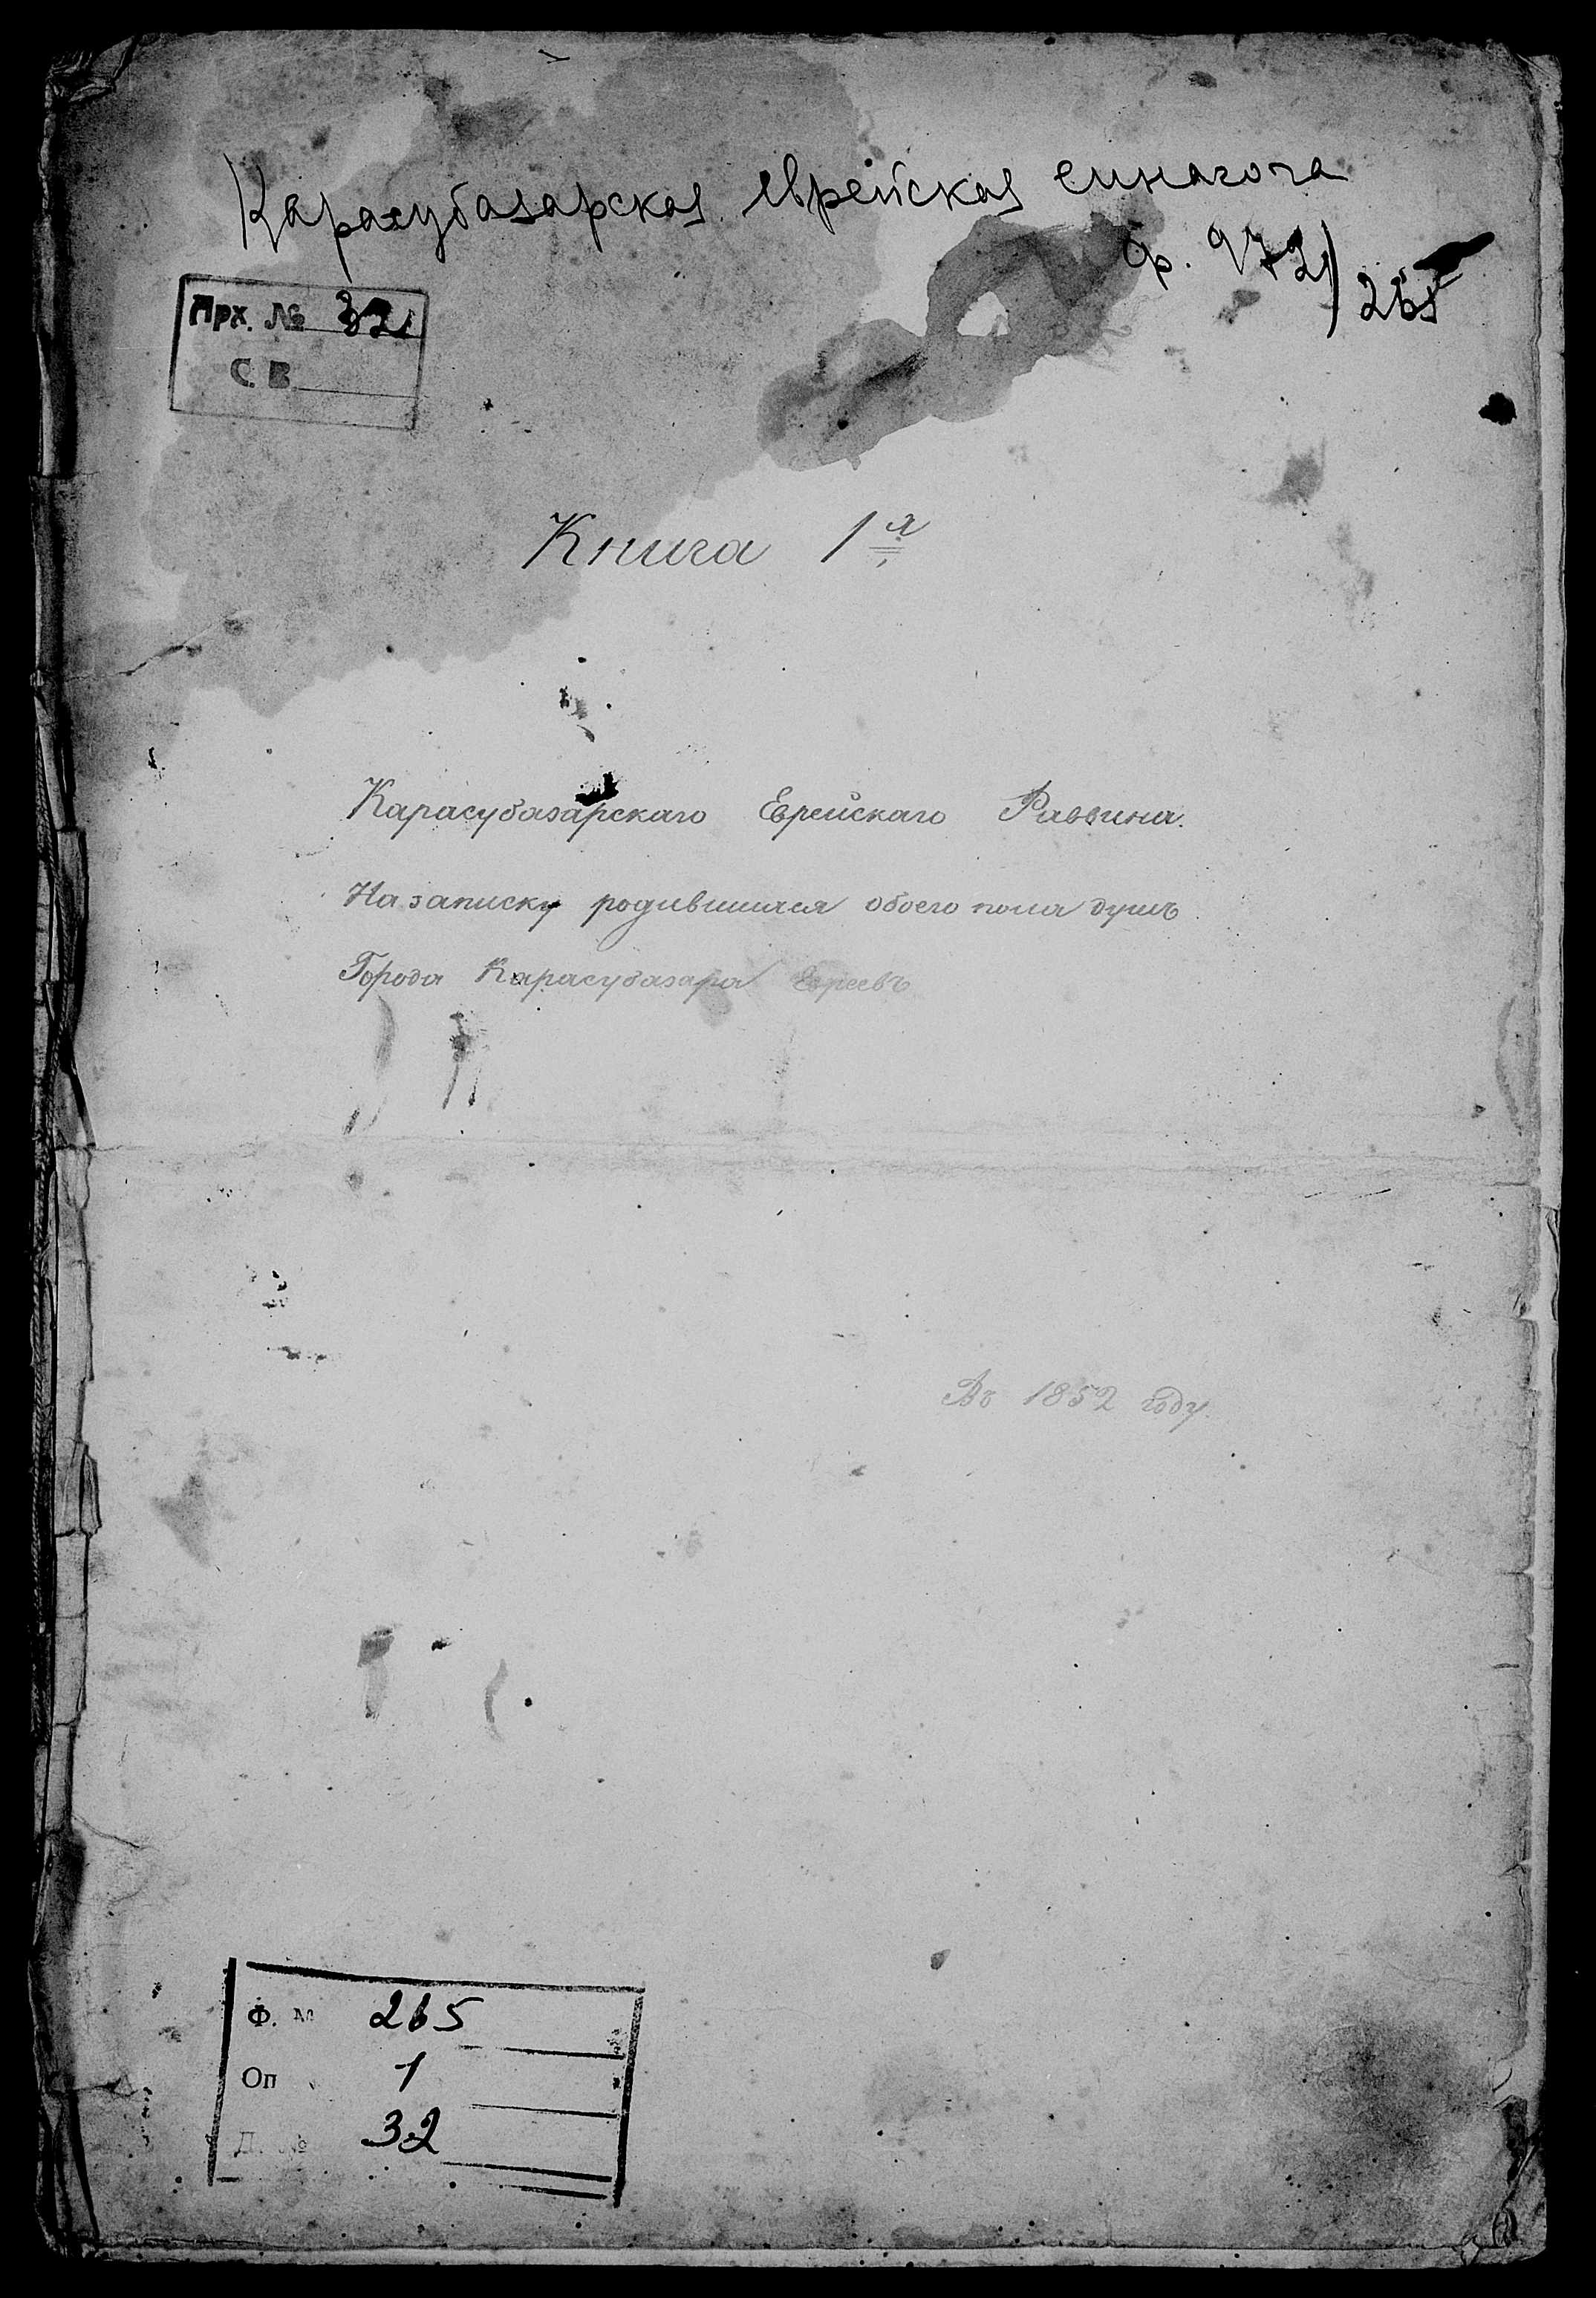 Карасубазарская еврейская синагога
ф. 972
265
Арх. № 32
С. В.
Книга 1я
Карасубазарскаго Еврейскаго Раввина.
На записку родившихся обоего пола душъ
Города Карасубазара Евреевъ
Въ 1852 году.
Ф. № 265
Оп 1
Д. № 32